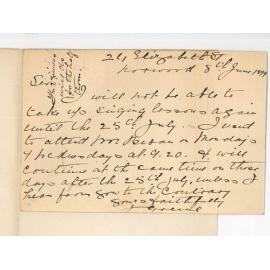 24, Elizabeth St
Norwood 8th June 1899
Sir
will not be able to
take up singing lessons again
until the 25th July. I used
to attend Mr on Mondays
& Wednesdays at 9.20. & will
continue at the same time on those
days after the 25th July, unless I
hear from you to the Contrary
Yours faithfully